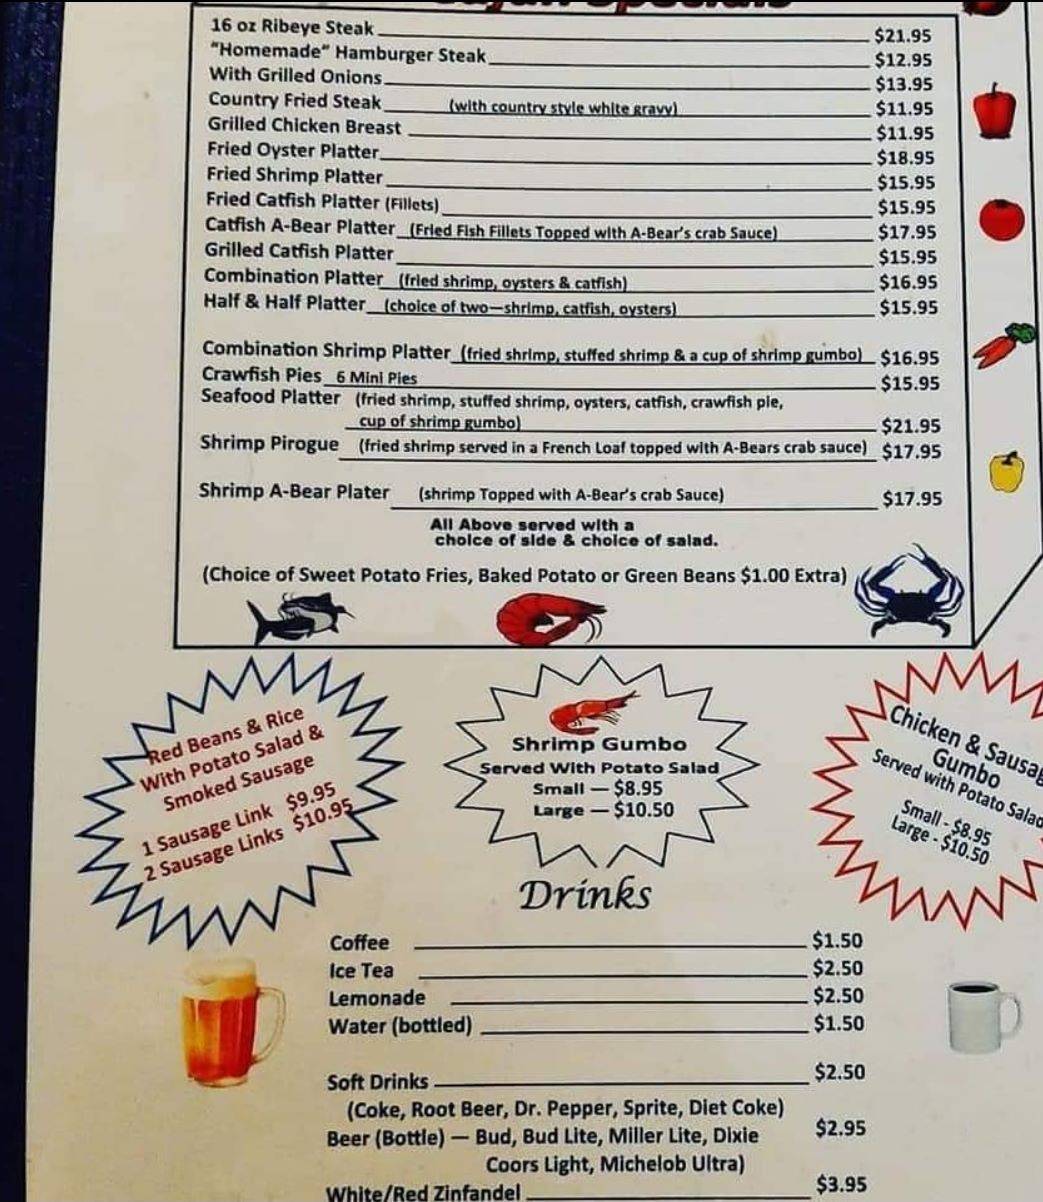 Cajun Specials
16 oz Ribeye Steak $21.95
"Homemade" Hamburger Steak $12.95
With Grilled Onions $13.95
Country Fried Steak (with country style white gravy) $11.95
Grilled Chicken Breast $11.95
Fried Oyster Platter $18.95
Fried Shrimp Platter $15.95
Fried Catfish Platter (Fillets) $15.95
Catfish A-Bear Platter (Fried Fish Fillets Topped with A-Bear's crab Sauce) $17.95
Grilled Catfish Platter $15.95
Combination Platter (fried shrimp, oysters & catfish) $16.95
Half & Half Platter (choice of two—shrimp, catfish, oysters) $15.95
Combination Shrimp Platter (fried shrimp, stuffed shrimp & a cup of shrimp gumbo) $16.95
Crawfish Pies 6 Mini Pies $15.95
Seafood Platter (fried shrimp, stuffed shrimp, oysters, catfish, crawfish pie,
cup of shrimp gumbo) $21.95
Shrimp Pirogue (fried shrimp served in a French Loaf topped with A-Bears crab sauce) $17.95
Shrimp A-Bear Plater (shrimp Topped with A-Bear's crab Sauce) $17.95
All Above served with a
choice of side & choice of salad.
(Choice of Sweet Potato Fries, Baked Potato or Green Beans $1.00 Extra)
Red Beans & Rice
With Potato Salad &
Smoked Sausage
1 Sausage Link $9.95
2 Sausage Links $10.95
Shrimp Gumbo
Served With Potato Salad
Small — $8.95
Large — $10.50
Chicken & Sausag
Gumbo
Served with Potato Salad
Small - $8.95
Large - $10.50
Drinks
Coffee $1.50
Ice Tea $2.50
Lemonade $2.50
Water (bottled) $1.50
Soft Drinks $2.50
(Coke, Root Beer, Dr. Pepper, Sprite, Diet Coke)
Beer (Bottle) — Bud, Bud Lite, Miller Lite, Dixie $2.95
Coors Light, Michelob Ultra)
White/Red Zinfandel $3.95